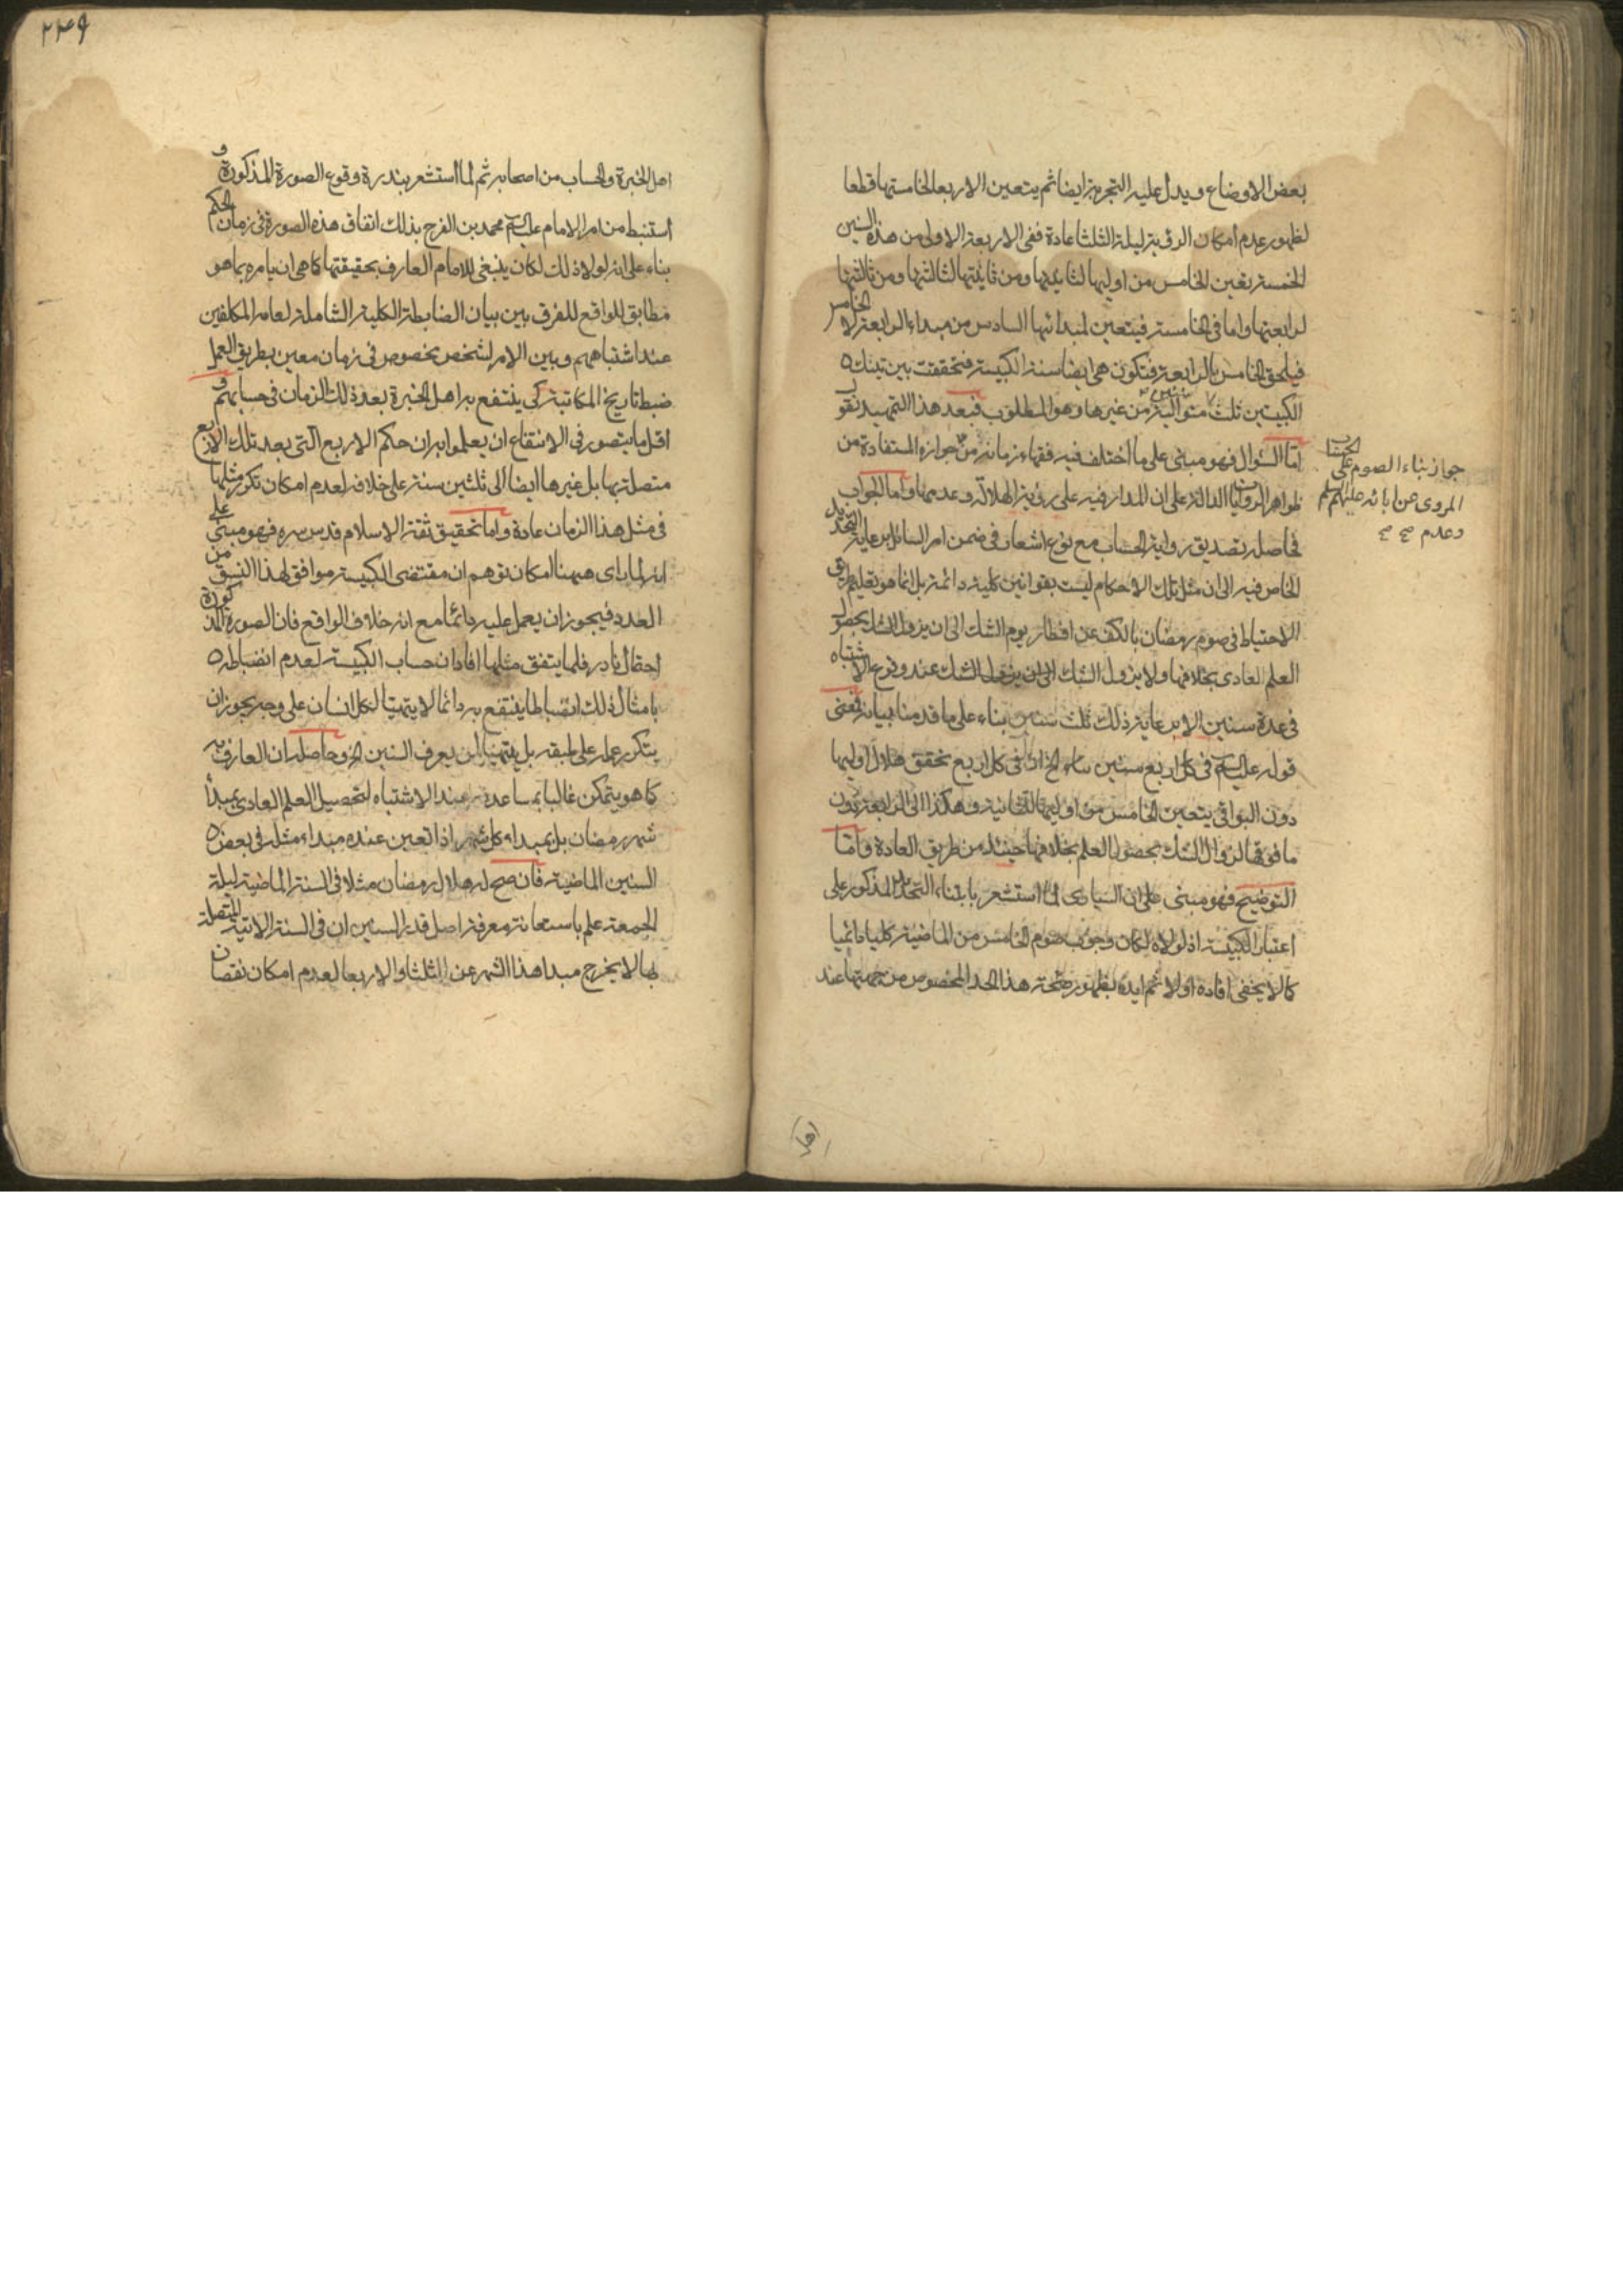 بعض الاوضاع ويدل عليه التجربة ايضا ثم يتعين الاربعا لخامستها قطعا
لظهور عدم امكان الرؤية ليلة الثلثا عادة ففى الاربعة الاولى من هذه السنين
الخمسة بعين الخامس من اوليها لثانيتها ومن ثانيتها لثالثتها ومن ثالثتها
لرابعتها واما فى الخامسة فيتعين لمبدائها السادس من مبداء الرابعة لا الخامس
فيلحق الخامس بالرابعة فتكون هى ايضا سنة الكبيسة فتحققت بين تينك
الكبيستين ثلث سنين متوالية من غيرها وهو المطلوب فبعد هذا التمهيد نقول
اما السؤال فهو مبنى على ما اختلف فيه فقهاء زمانه من جوازه المستفادة من
ظواهر الروايات الدالة على ان المدار فيه على رؤية الهلال وعدمها واما الجواب
فحاصله تصديق رواية الحساب مع نوع اشعار فى ضمن امر السائل برعاية التحديد
الخاص فيه الى ان مثل تلك الاحكام ليست بقوانين كلية دائمة بل انما هو تعليم طريق
الاحتياط فى صوم رمضان بالكف عن افطار يوم الشك الى ان يزول الشك بحصول
العلم العادى بخلافها ولا يزول الشك الى ان يزول الشك عند وقوع الاشتباه
فى عدة سنين الا برعاية ذلك ثلث سنين بناء على ما قدمنا بيانه فمعنى
قوله عليه السلام فى كل اربع سنين الخ ان فى كل اربع تحقق هلال اوليها
دون البواقى يتعين الخامس من اوليها للثانية وهكذا الى الرابعة دون
ما فوقها لزوال الشك بحصول العلم بخلافها حينئذ من طريق العادة واما
التوضيح فهو مبنى على ان السيارى لما استشعر بابتناء التحديد المذكور على
اعتبار الكبيسة اذ لولاه لكان وجوب صوم الخامس من الماضية كليا دائميا
كما لا يخفى افاده اولا ثم ايده بظهور صحة هذا الحد المخصوص من جهتها عند
جواز بناء الصوم على الحساب
المروى عن ابائه عليهم السلم
وعدم
۲۴۹
اهل الخبرة والحساب من اصحابه ثم لما استشعر بندرة وقوع الصورة المذكورة و
استنبط من امر الامام عليه السلام محمد بن الفرج بذلك اتفاق هذه الصورة فى زمان الحكم
بناء على انه لولا ذلك لكان ينبغى للامام العارف بحقيقتها كما هى ان يامره بما هو
مطابق للواقع للفرق بين بيان الضابطة الكلية الشاملة لعامه المكلفين
عند اشتباههم وبين الامر لشخص مخصوص فى زمان معين بطريق العمل
ضبط تاريخ المكاتبة كى ينتفع به اهل الخبرة بعد ذلك الزمان فى حسابهم و
اقل ما يتصور فى الانتفاع ان يعلموا به ان حكم الاربع التى بعد تلك الاربع
متصلة بها بل غيرها ايضا الى ثلثين سنة على خلافه لعدم امكان تكرر مثلها
فى مثل هذا الزمان عادة واما تحقيق ثقة الاسلام قدس سره فهو مبنى على
انه لما راى ههنا امكان توهم ان مقتضى الكبيسة موافق لهذا النسق من
العدد فيجوز ان يعمل عليه دائما مع انه خلاف الواقع فان الصورة المذكورة
احتمال نادر فلما يتفق مثلها افاد ان حساب الكبيسة لعدم انضباطه
بامثال ذلك انضباطا ينتفع به دائما لا يتهيا لكل انسان على وجه يجوز ان
يتكرر عمله على طبقه بل يتهيا لمن يعرف السنين الخ وحاصله ان العارف به
كما هو يتمكن غالبا بمساعدته عند الاشتباه لتحصيل العلم العادى بمبدأ
شهر رمضان بل بمبداء كل شهر اذا تعين عنده مبداء مثله فى بعض
السنين الماضية فان صح له هلال رمضان مثلا فى السنة الماضية ليلة
الجمعة علم باستعانة معرفة اصل قدر السنين ان فى السنة الاتية المتصلة
بها لا يخرج مبدا هذا الشهر عن الثلثا والاربعا لعدم امكان نقصان